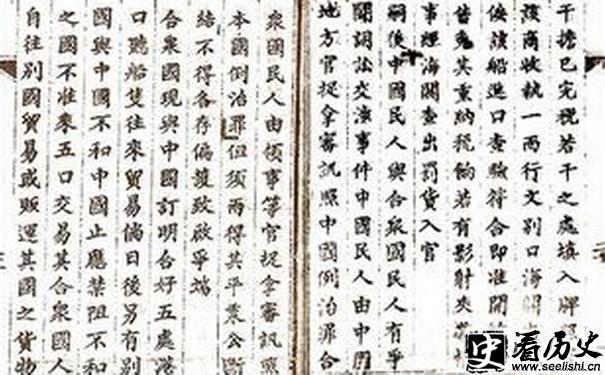 干擔已完稅若干之處填入牌
該商收執一面行文別口海關
俟該船進口查驗符合即准開
皆免其重納稅餉若有影射夾
事經海關查出罰貨入官
嗣後中國民人與合衆國民人有爭
鬬詞訟交涉事件中國民人由中國
地方官捉拿審訊照中國例治罪合
衆國民人由領事等官捉拿審訊照
本國例治罪但須兩得其平秉公斷
結不得各存偏護致啟爭端
合衆國現與中國訂明合好五處港
口聽船隻往來貿易倘日後另有別
國與中國不和中國止應禁阻不和
之國不准來五口交易其合衆國人
自往別國貿易或販運其國之貨物
史 看历史
www.seelishi.cn